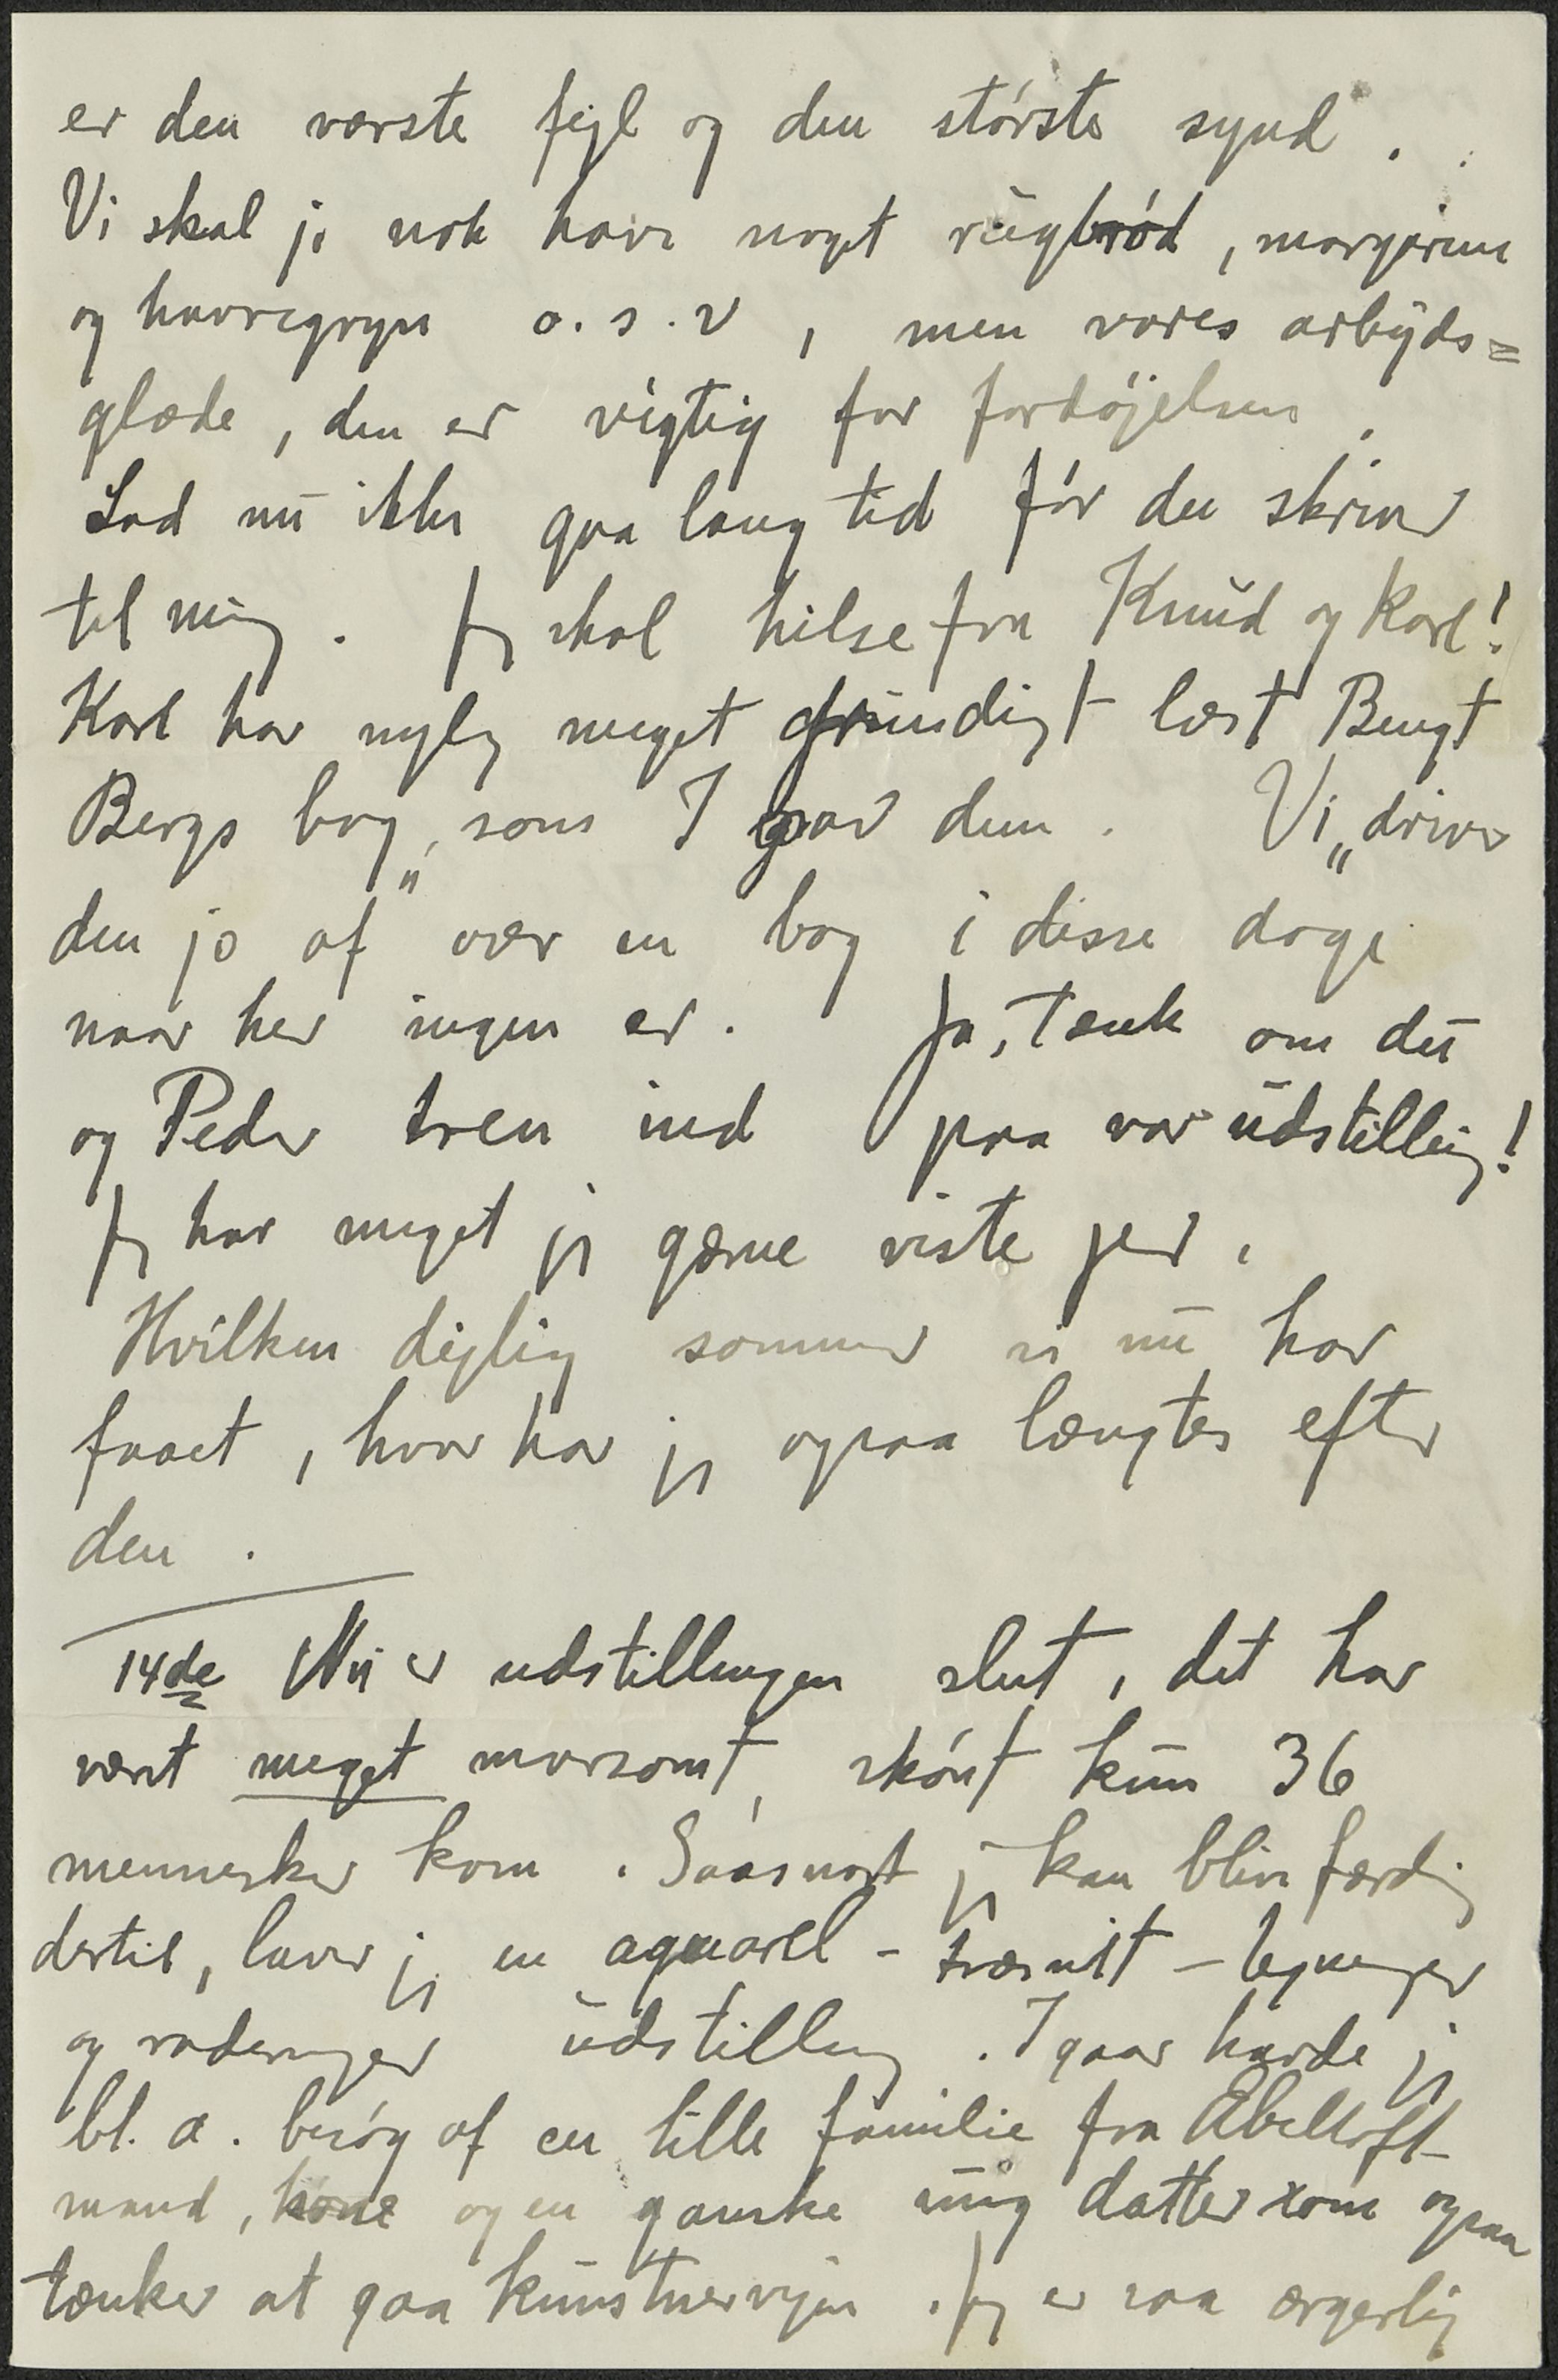 er den værste fejl og den største synd.
Vi skal jo nok have noget rugbrød, margarine
og havregryn o.s.v, men vores arbejds=
glæde, den er vigtig for fordøjelsen.
Lad nu ikke gaa lang tid før du skriver
til mig. Jeg skal hilse fra Knud og Karl!
Karl har nylig meget grundigt læst Bengt
Bergs bog, som I gav dem. Vi „driver
den jo af" over en bog i disse dage
naar her ingen er. Ja, tænk om du
og Peder tren ind paa vor udstilling!
Jeg har meget jeg gærne viste jer.
Hvilken dejlig sommer vi nu har
faaet, hvor har jeg ogsaa længtes efter
den.
14de Nu er udstillingen slut, det har
været meget morsomt, skønt kun 36
mennesker kom. Saasnart jeg kan blive færdig
dertil, laver jeg en aquarel - træsnit - tegninger
og raderinger udstilling. Igaar havde jeg
bl. a. besøg af en lille familie fra Æbeltoft
mand, kone og en ganske ung datter som ogsaa
tænker at gaa kunstnervejen. Jeg er saa ærgerlig